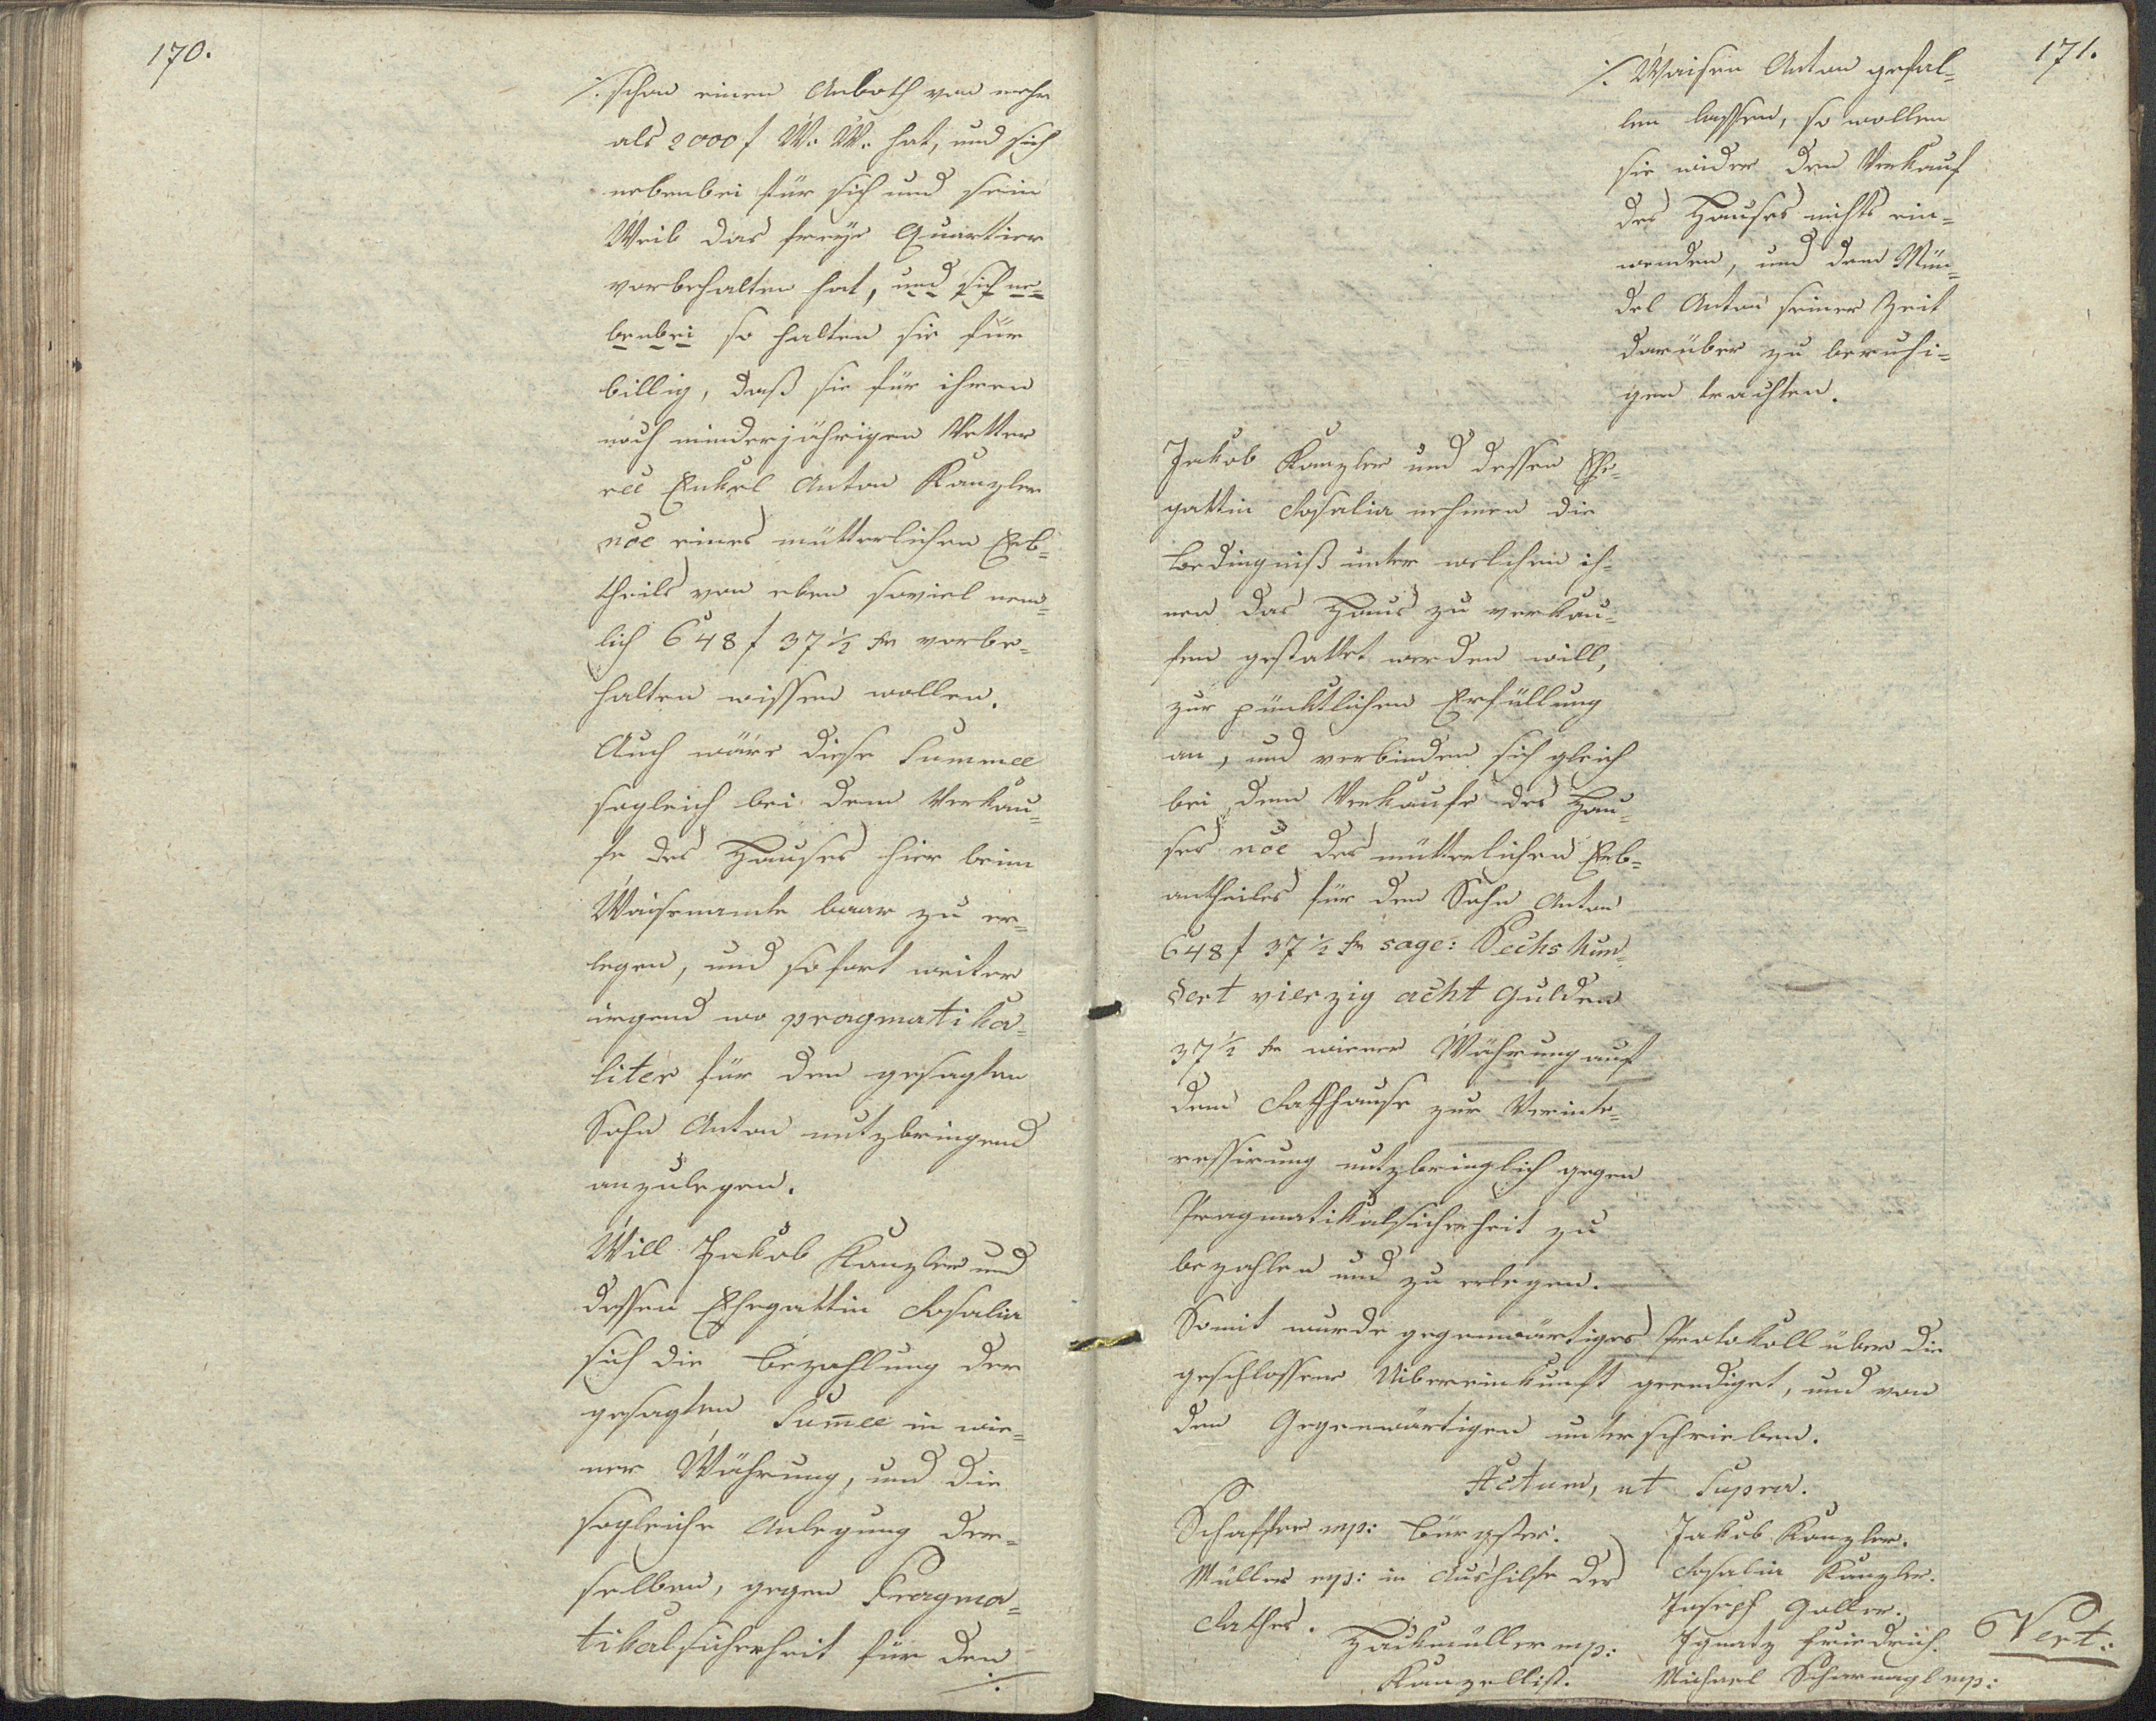 170.
./. schon einen Anboth von mehr
als 2000 f W: W: hat, und sich
nebenbei für sich und sein
Weib das freye Quartier
vorbehalten hat, und sich ne=
benbei so halten sie für
billig, daß sie für ihren
noch minderjährigen Vetter
rcc Enkel Anton Kanzler
noe eines mütterlichen Erb=
theils von eben soviel nem=
lich 648 f 37 ½ kr vorbe=
halten wissen wollen.
Auch wäre diese Summe
sogleich bei dem Verkau=
fe des Hauses hier beim
Waisenamte baar zu er=
legen, und sofort weiter
irgend wo pragmatika=
liter für den gesagten
Sohn Anton nutzbringend
anzulegen.
Will Jakob Kanzler und
dessen Ehegattin Rosalia
sich die Bezahlung der
gesagten Sum̄e in wie=
ner Währung, und die
sogleiche Anlegung der=
selben, gegen Pragma=
tikalsicherheit für den
./.
171.
./. Waisen Anton gefal=
len lassen, so wollen
sie wider den Verkauf
des Hauses nichts ein=
wenden, und den Mün=
del Anton seiner Zeit
darüber zu beruhi=
gen trachten.
Jakob Kanzler und dessen Ehe=
gattin Rosalia nehmen die
Bedingniß unter welchen ih=
nen das Haus zu verkau=
fen gestattet werden will,
zur pünktlichen Erfüllung
an, und verbinden sich gleich
bei dem Verkaufe des Hau=
ses noe des mütterlichen Erb=
antheiles für den Sohn Anton
648 f 37 ½ kr sage: Sechshun=
dert vierzig acht Gulden
37 ½ kr wiener Währung auf
dem Rathhause zur Verinte=
ressirung nutzbringlich gegen
Pragmatikalsicherheit zu
bezahlen und zu erlegen.
Somit wurde gegenwärtiges Protokoll über die
geschlossene Uibereinkunft geendiget, und von
den Gegenwärtigen unterschrieben.
Actum, ut Supra.
Schaffer mp: Bürgster.
Jakob Kanzler.
Müller mp: in Aushilfe des
Rosalia Kanzler.
Rathes.
Joseph Goller.
Hackmüller mp:
Ignatz Friedrich.
Vert:
Kanzellist.
Michael Scharnagl mp: